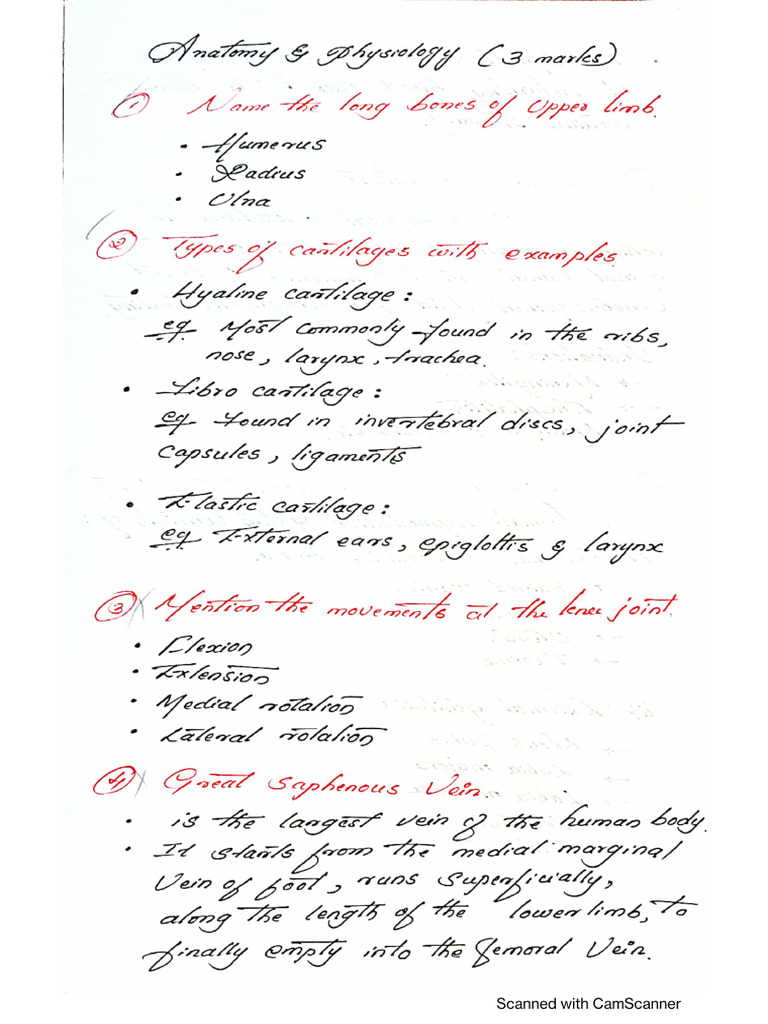 Anatomy & Physiology (3 marks)
① Name the long bones of Upper limb.
• Humerus
• Radius
• Ulna
② Types of cartilages with examples.
• Hyaline cartilage :
eg Most commonly found in the ribs,
nose, larynx, trachea.
• Fibro cartilage :
eg found in invertebral discs, joint
capsules, ligaments
• Elastic cartilage :
eg External ears, epiglottis & larynx
③ Mention the movements at the knee joint.
• Flexion
• Extension
• Medial rotation
• Lateral rotation
④ Great Saphenous Vein
• is the largest vein of the human body.
• It starts from the medial marginal
Vein of foot, runs superficially,
along the length of the lower limb, to
finally empty into the femoral Vein.
Scanned with CamScanner